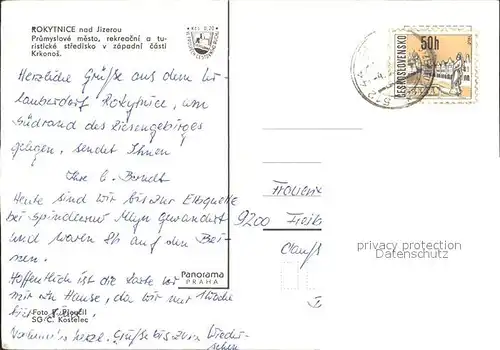 ROKYTNICE nad Jizerou
Průmyslové město, rekreační a tu-
ristické středisko v západní části
Krkonoš.
Kčs 0,20
Herzliche Grüße aus dem Ur-
lauberdorf Rokytnice, am
Südrand des Riesengebirges
gelegen, sendet Ihnen
Ihre C. Bundt
Heute sind wir bis zur Elbquelle
bei Spindleruv Mlyn gewandert
und waren 8h auf den Bei-
nen.
Hoffentlich ist die Karte vor
mir zu Hause, da wir nur 1 Woche
hier
herzl. Grüße bis zum Wieder-
sehen
Panorama
PRAHA
Foto
SG/C. Kostelec
ČESKOSLOVENSKO
50h
9200 Freib
Clauß
privacy protection
Datenschutz